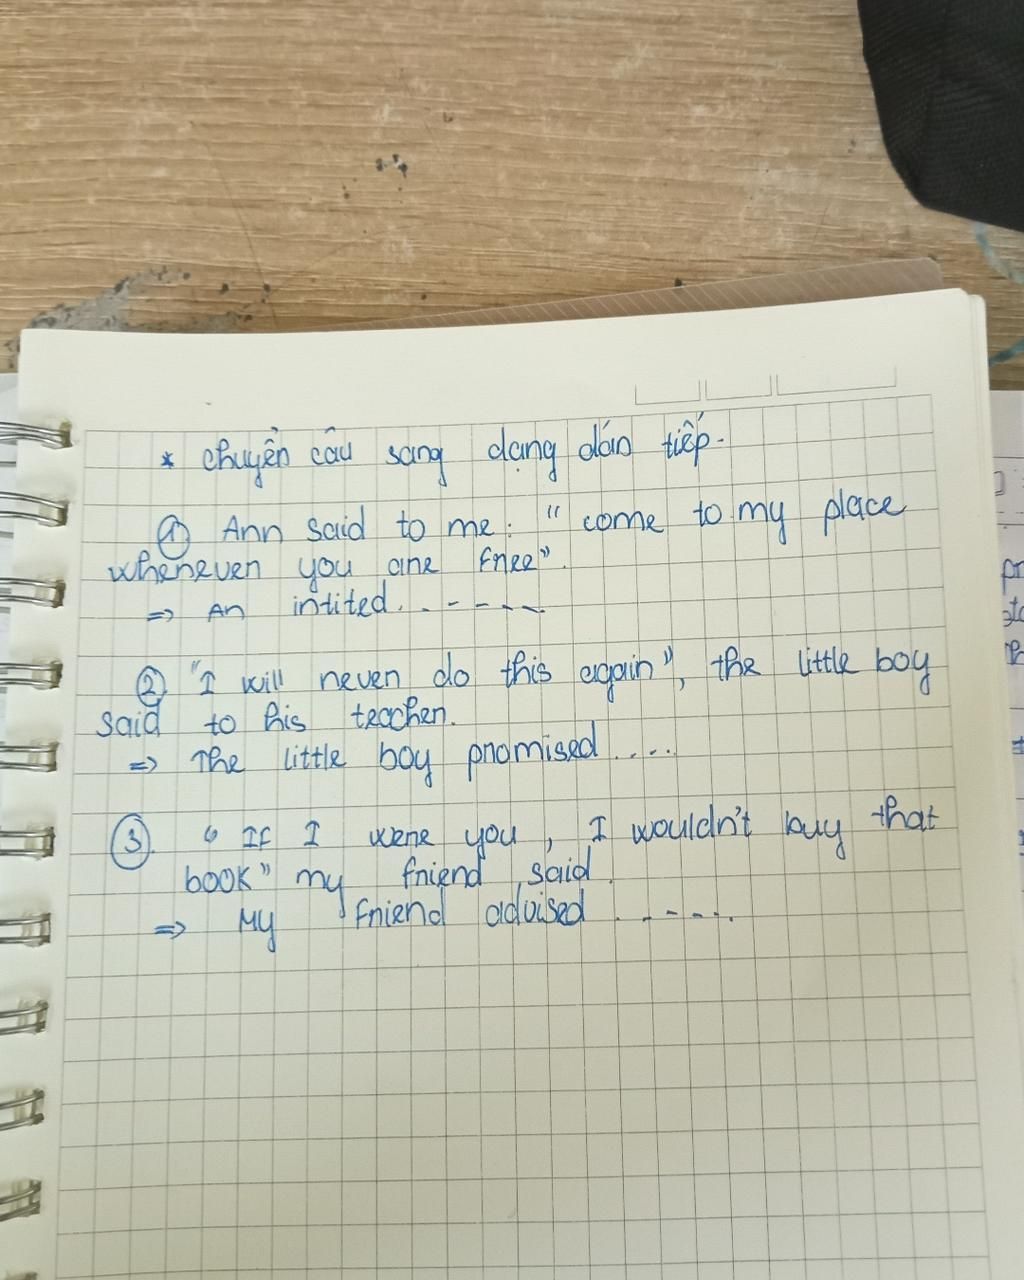 * chuyển câu sang dạng dán tiếp.
① Ann said to me: "come to my place
whenever you are free".
=> An intited. . - - - -
② "I will never do this again", the little boy
said to his teacher.
=> The little boy promised ....
③. "If I were you, I wouldn't buy that
book" my friend said.
=> My friend advised . - - - .